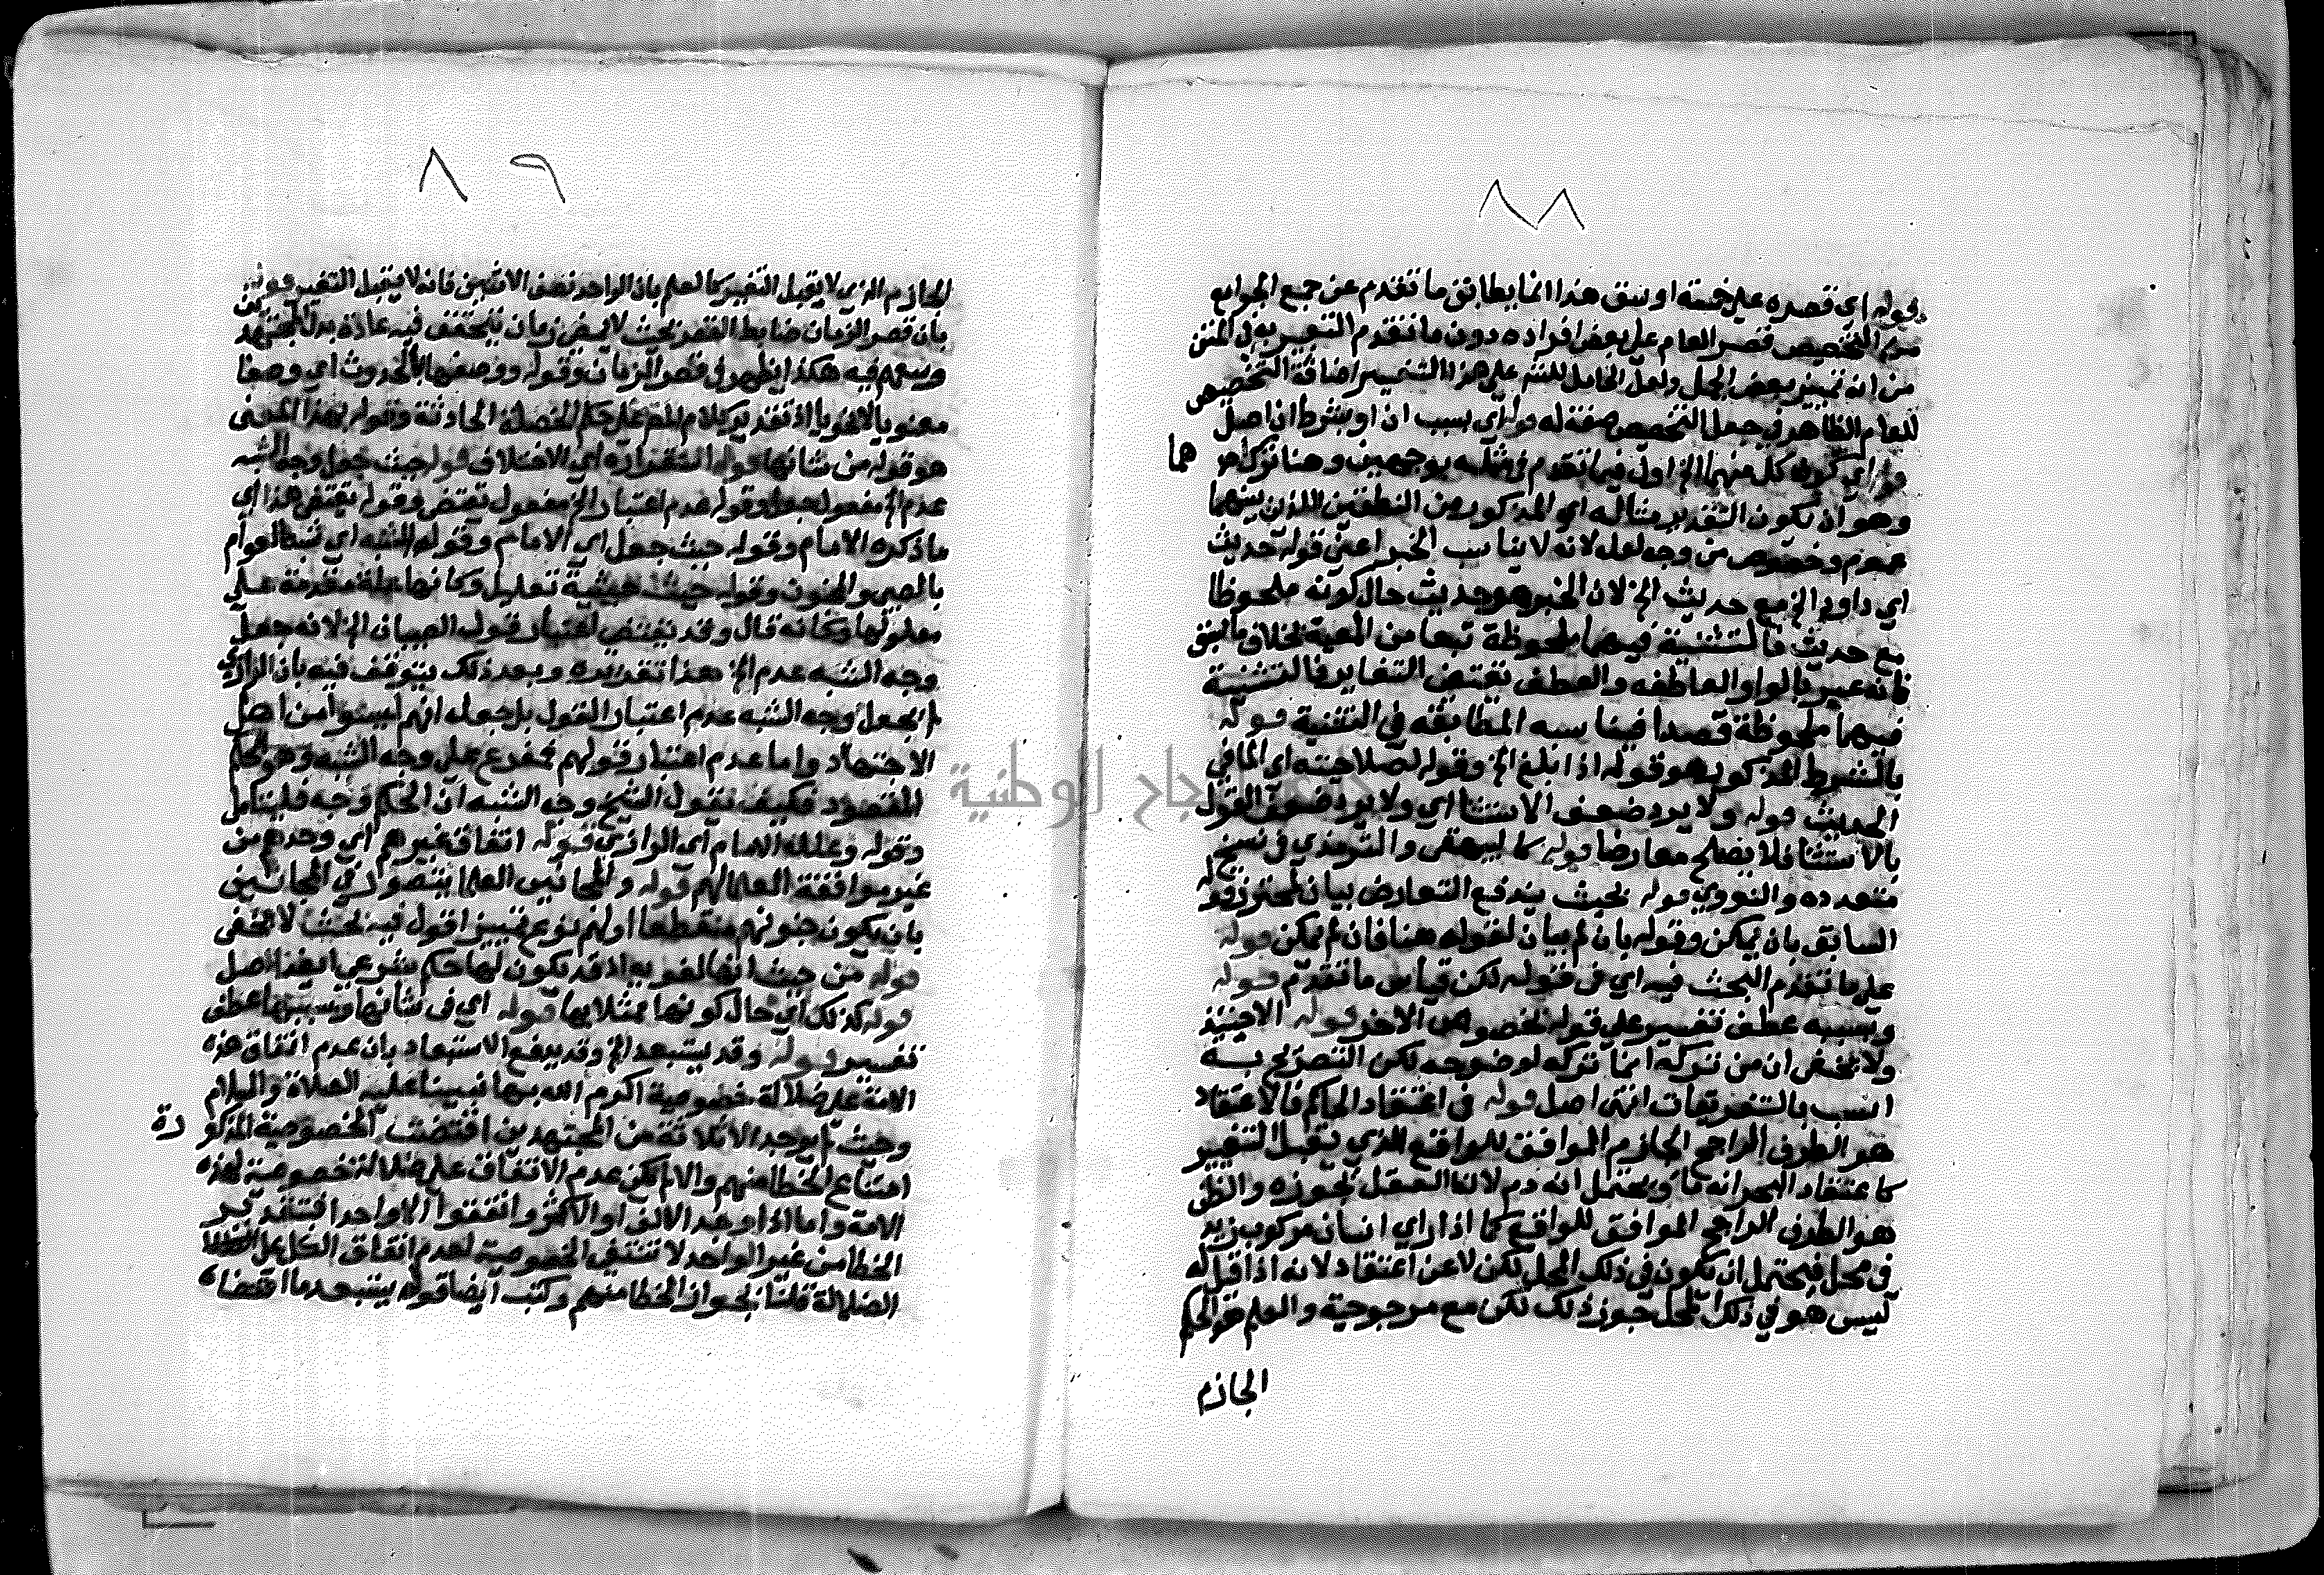 ٨٨
قوله اي قصره على خمسة اوسق هذا انما يطابق ما تقدم عن جمع الجوامع
من ان التخصيص قصر العام على بعض افراده دون ما تقدم التعبير به في المتن
من انه تمييز بعض الجمل ولعل الحامل للشم على هذا التفسير اضافة التخصيص
للعام الظاهر في جعل التخصيص صفة له قوله اي بسبب ان او بشرط ان اصل
قوله اي كون كل منهما الخ اول فيما تقدم في مثله بوجهين وهنا ترك احدهما
وهو ان يكون التقدير مثاله اي المذكور من النطقين اللذين بينهما
عموم وخصوص من وجه لعله لانه لا يناسب الخبر اعني قوله حديث
ابي داود الخ مع حديث الخ لان الخبر هو حديث حال كونه ملحوظا
مع حديث فالتثنية فيهما ملحوظة تبعا من المعية بخلاف ما سبق
فانه عبر بالواو العاطفه والعطف يقتضي التغاير فالتثنية
فيهما ملحوظة قصدا فيناسبه المطابقه في التثنية قوله
بالشرط المذكور هو قوله اذا بلغ الخ وقوله لصلاحيته اي لما في
الحديث قوله ولا يرد ضعف الاستثنا اي ولا يرد ضعف القول
بالاستثنا فلا يصلح معارضا قوله كالبيهقي والترمذي في نسخ
متعدده والنووي قوله بحيث يندفع التعارض بيان لمحترز قوله
السابق بان يمكن وقوله بان لم بيان لقوله هنا فان لم يمكن قوله
على ما تقدم البحث فيه اي في قوله لكن قياس ما تقدم قوله
وبسببه عطف تفسير على قوله لخصوص الاخر قوله الاحينيذ
ولا يخفى ان من تركه انما تركه لوضوحه لكن التصريح به
انسب بالتعريفات انتهى اصل قوله في اعتقاد الحاكم فالاعتقاد
هو الطرف الراجح الجازم الموافق للواقع الذي يقبل التغيير
كاعتقاد البحر انه ماء ويحتمل انه دم لانا العقل يجوزه والظن
هو الطرف الراجح الموافق للواقع كما اذا راي انسان مركوب زيد
في محل فيحتمل ان يكون في ذلك المحل لكن لا عن اعتقاد لانه اذا قيل له
ليس هو في ذلك المحل جوز ذلك لكن مع مرجوحية والعلم هو الحكم
الجازم
٨٩
الجازم الذي لا يقبل التغيير كالعلم بان الواحد نصف الاثنين فانه لا يقبل التغيير قوله
بان قصر الزمان ضابط القصر بحيث لا يمضي زمان يتحقق فيه عادة بذل المجتهد
وسعهم فيه هكذا يظهر في قصر الزمان وقوله ووصفها بالحدوث اي وصفا
معنويا لا لغويا اذ تقدير كلام المتن على حكم الخصلة الحادثة وقوله بهذا المعنى
هو قوله من شانها قوله استقراره اي الاختلاف قوله حيث جعل وجه الشبه
عدم الخ مفعول جعل وقوله عدم اعتبار الخ مفعول تقتضي وقوله يقتضي هذا اي
ما ذكره الامام وقوله حيث جعل اي الامام وقوله الشبه اي شبه العوام
بالصبي والمجنون وقوله حيث حيثية تعليل وكانها علة مقدمة على
معلولها وكانه قال وقد يقتضي اعتبار قول الصبيان الخ لانه جعل
وجه الشبه عدم الخ هذا تقديره وبعد ذلك يتوقف فيه بان الرازي
لم يجعل وجه الشبه عدم اعتبار القول بل جعله انهم ليسوا من اهل
الاجتهاد واما عدم اعتبار قولهم فمفرع على وجه الشبه وهو الحكم
المقصود فكيف يقول الشيخ وجه الشبه ان الحكم وجه فليتامل
وقوله وعلله الامام اي الرازي قوله اتفاق غيرهم اي وحدهم من
غير موافقة العلما لهم قوله والمجانين العلما يتصور في المجانين
بان يكون جنونهم متقطعا او لهم نوع تمييز اقول فيه بحث لا يخفى
قوله من حيث انها لغوية اذ قد يكون لها حكم شرعي ايضا اصل
قوله كذلك اي حال كونها ممثلا بها قوله اي في شانها وبسببها عطف
تفسير قوله وقد يستبعد الخ وقد يدفع الاستبعاد بان عدم اتفاق هذه
الامة على ضلالة خصوصية اكرم الله بها نبينا عليه الصلاة والسلام
وحيث لم يوجد الا ثلاثة من المجتهدين اقتضت الخصوصية المذكورة
امتناع الخطا منهم والا لم يكن عدم الاتفاق على ضلالة خصوصية لهذه
الامة واما اذا وجد الالف او الاكثر واتفقوا الا واحدا فتقدير
الخطا من غير الواحد لا تنتفي الخصوصية لعدم اتفاق الكل على
الضلالة قلنا بجواز الخطا منهم وكتب ايضا قوله يستبعد ما اقتضاه